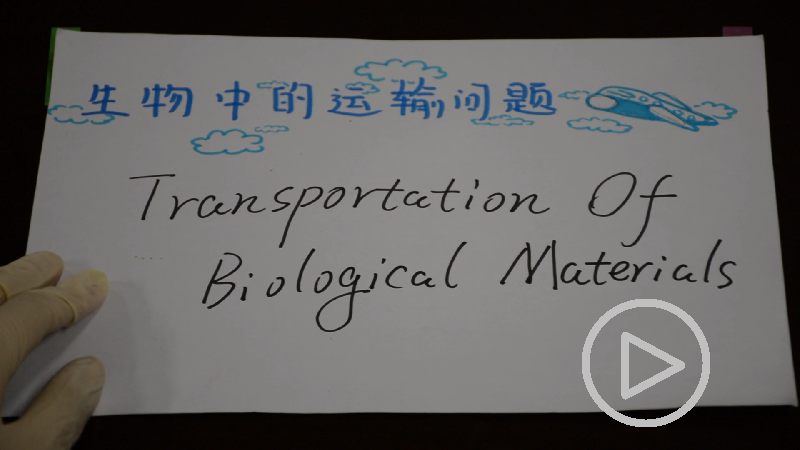 生物中的运输问题
Transportation Of
Biological Materials